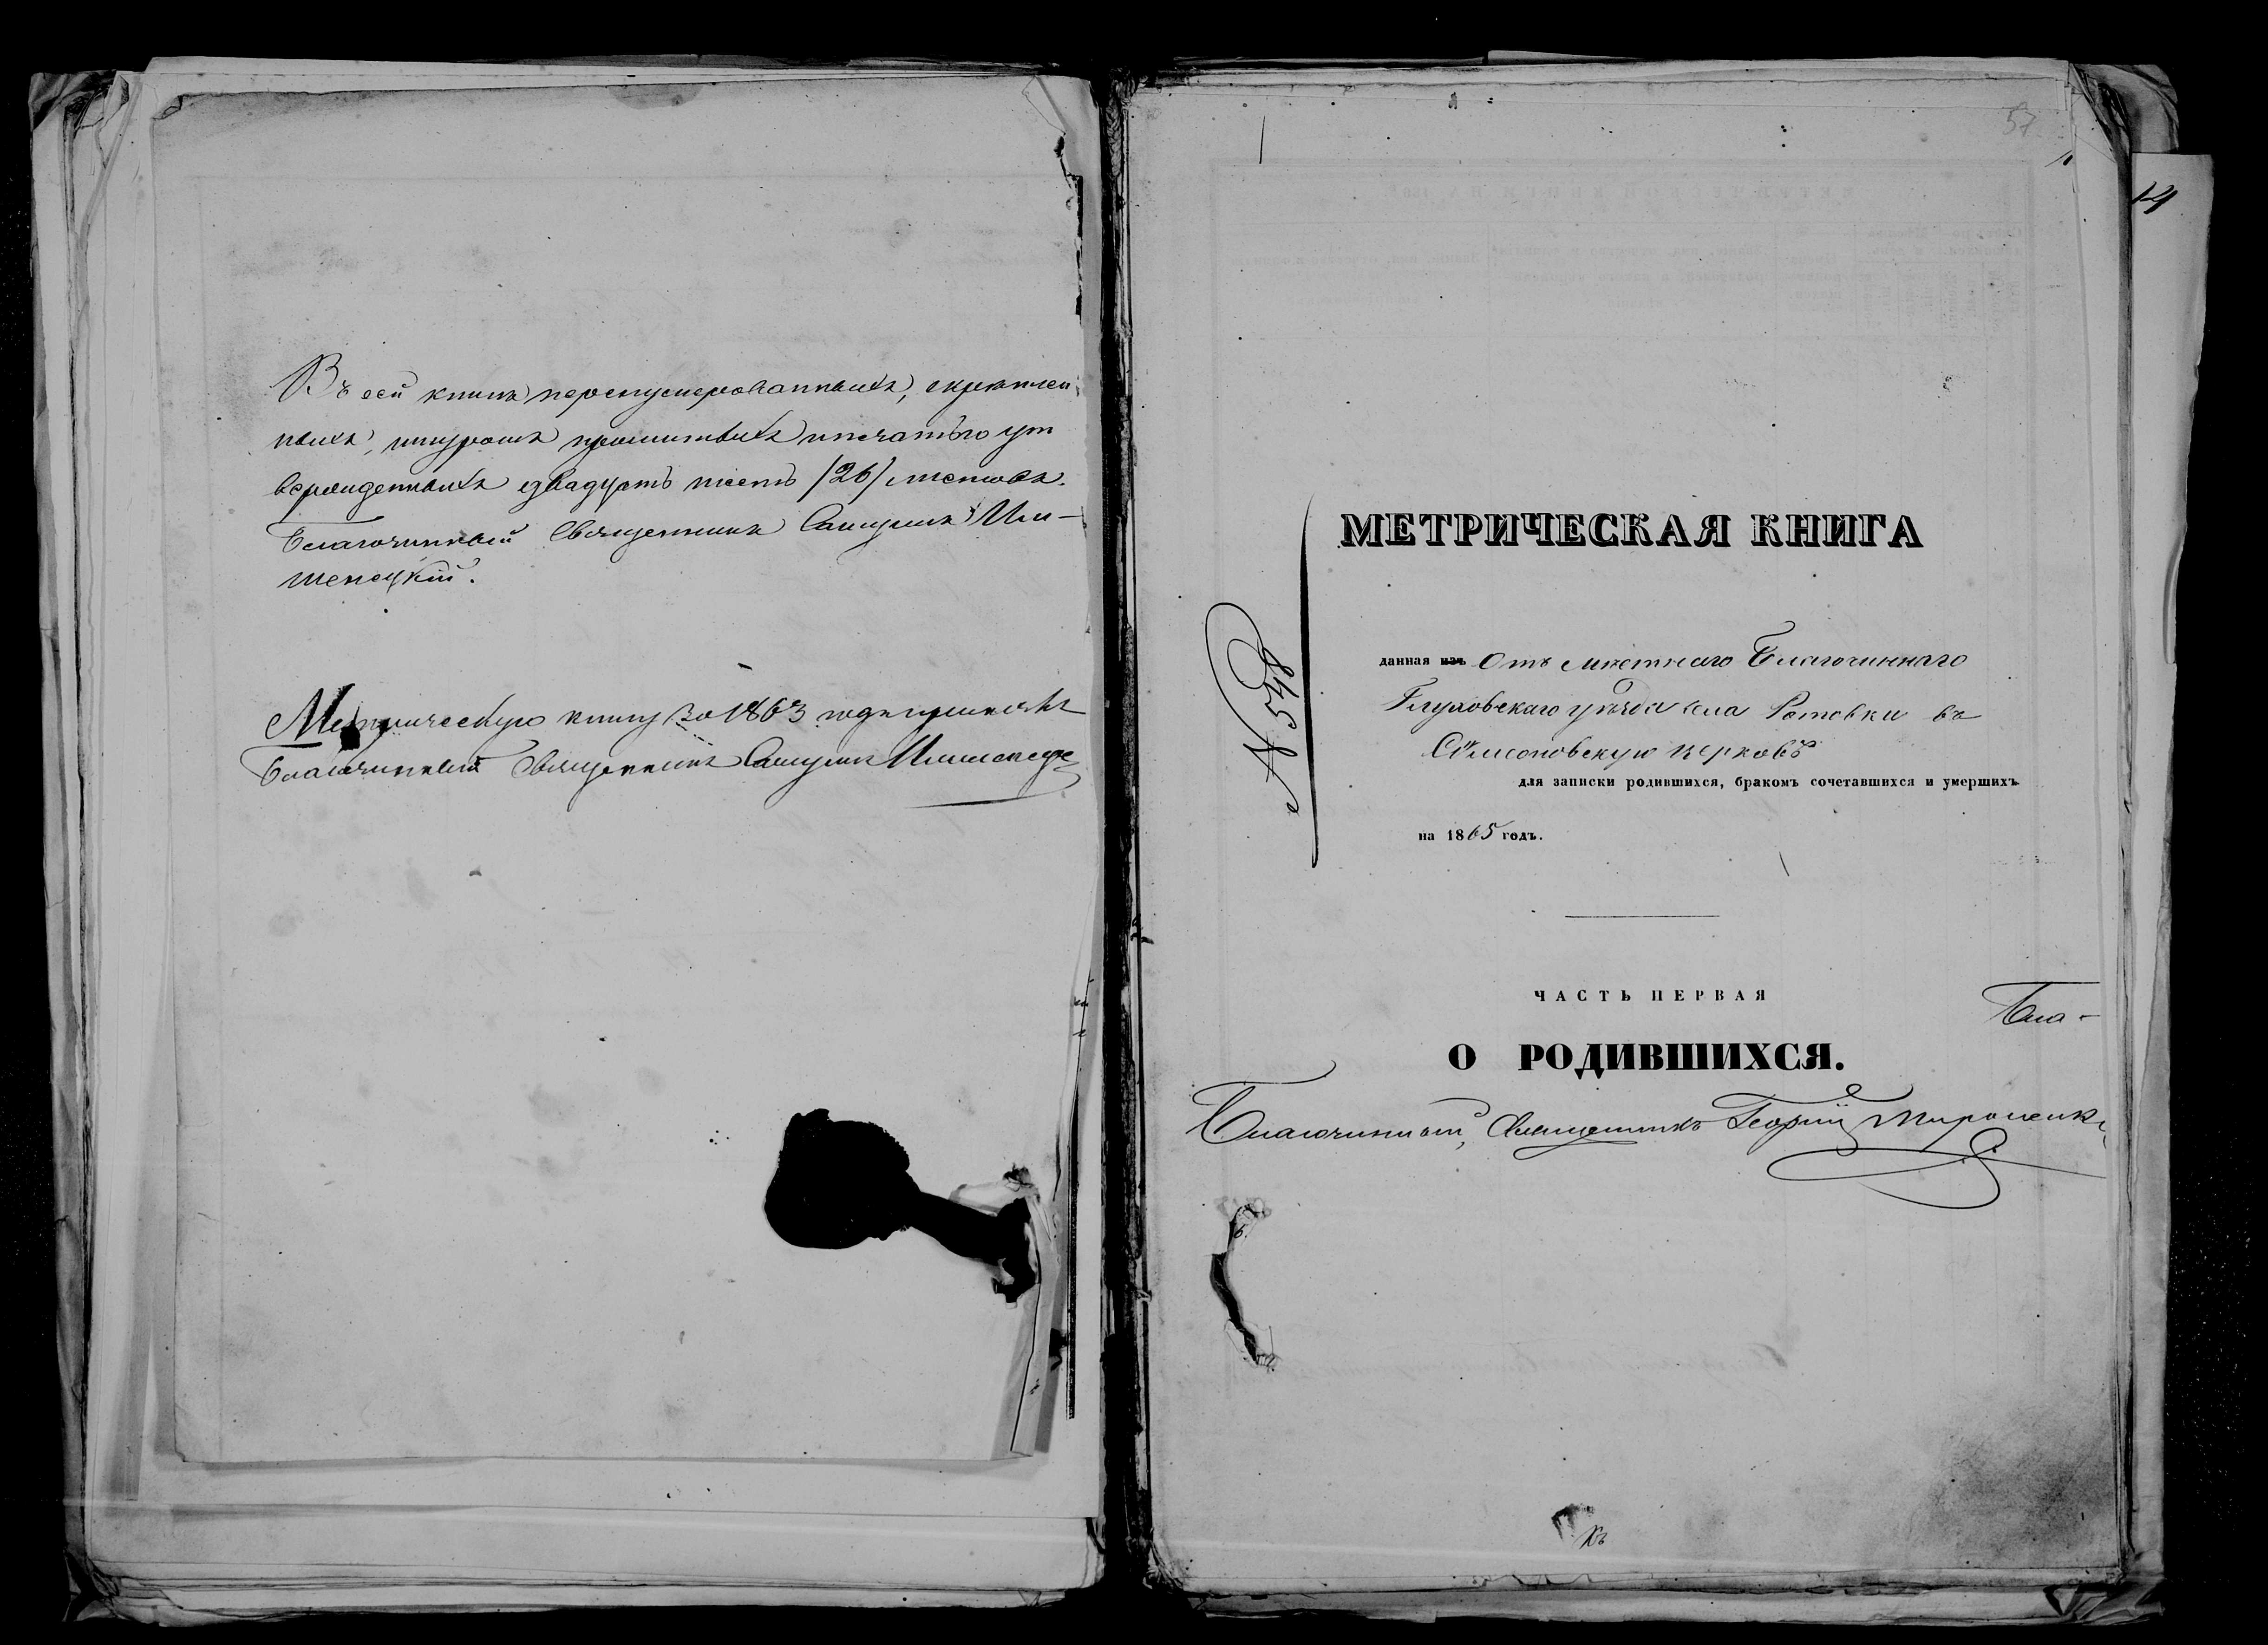 Въ сей книгѣ перенумерованныхъ, скрѣплен-
ныхъ, шнуромъ прошитыхъ и печатью ут
вержденныхъ двадцать шесть /26/ листовъ.
Благочинный Священникъ Самуилъ
Метрическую книгу за 1863 годъ
Благочинный Священникъ Самуилъ
57
14
МЕТРИЧЕСКАЯ КНИГА
N 548
данная изъ Отъ мѣстнаго Благочиннаго
Глуховскаго уѣзда села Ротовки въ
Сѵмеоновскую церковь
для записки родившихся, бракомъ сочетавшихся и умершихъ
на 1865 годъ.
ЧАСТЬ ПЕРВАЯ
Бла-
О РОДИВШИХСЯ.
Благочинный, Священникъ Георгій
Къ